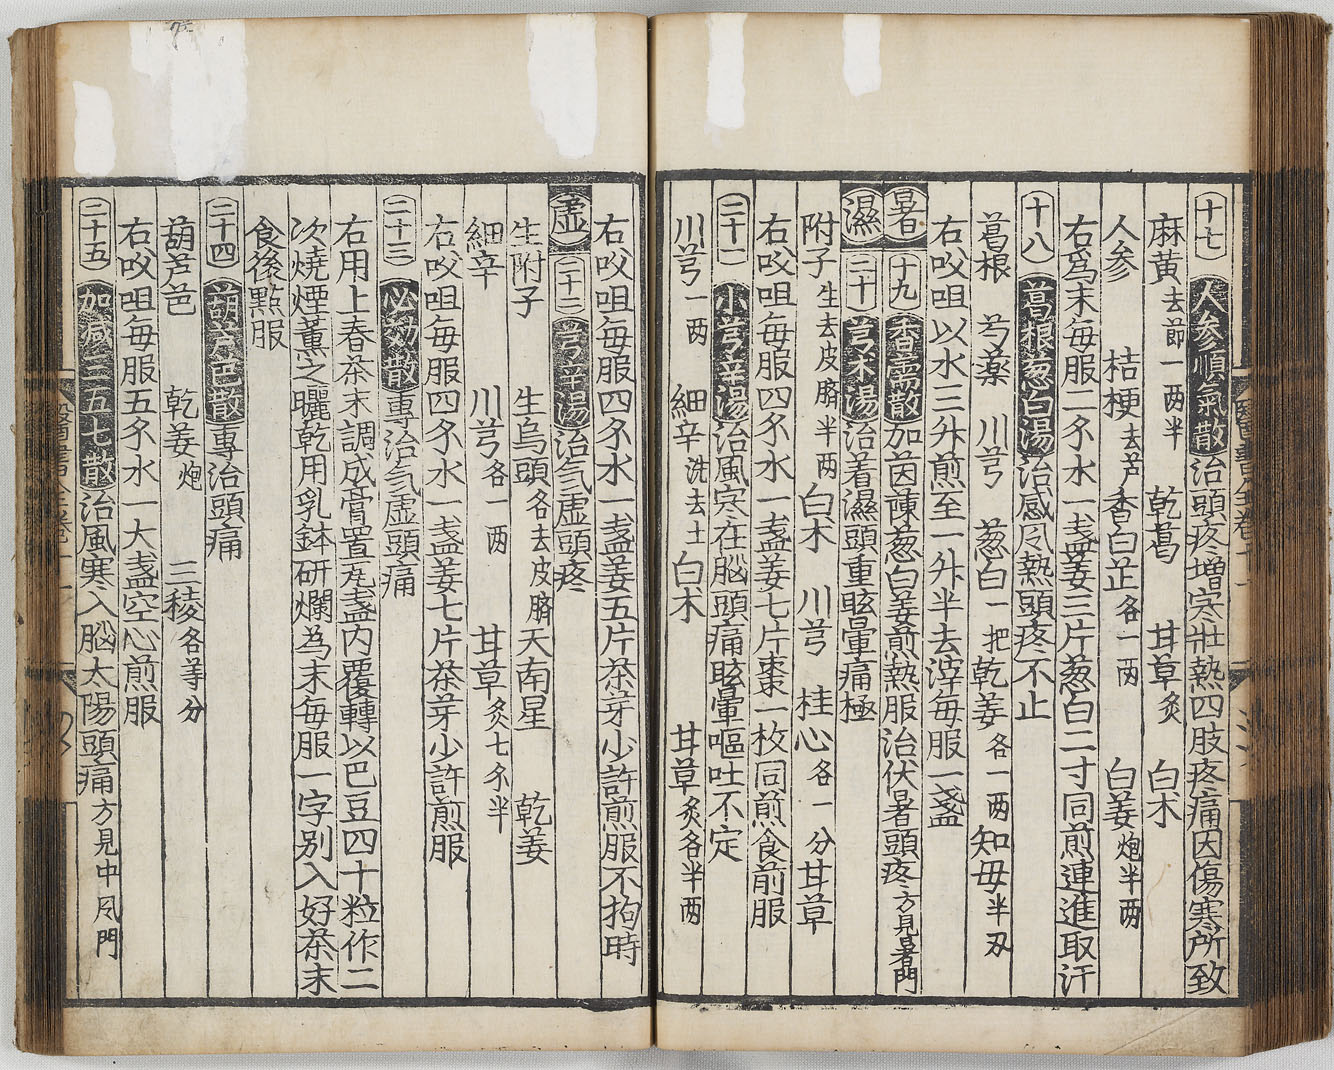 十七 人参順氣散治頭疼增寒壯熱四肢疼痛因傷寒所致
麻黃去節一两半 乾葛 甘草炙 白朮
人参 桔梗去芦香白芷各一两 白姜炮半两
右爲末每服二分水一盞姜三片葱白二寸同煎連進取汗
十八 葛根葱白湯治感风熱頭疼不止
葛根 芍藥 川芎 葱白一把乾姜各一两知母半刄
右㕮咀以水三升煎至一升半去滓每服一盞
暑 十九 香薷散加茵蔯葱白姜煎熱服治伏暑頭疼方見暑門
濕 二十 芎朮湯治着濕頭重眩暈痛極
附子生去皮臍半两白朮 川芎 桂心各一分甘草
右㕮咀每服四分水一盞姜七片棗一枚同煎食前服
二十一 小芎辛湯治風寒在腦頭痛眩暈嘔吐不定
川芎一两 細辛洗去土白朮 甘草炙各半两
右㕮咀每服四分水一盞姜五片茶芽少許煎服不拘時
虛 二十二 芎辛湯治氣虛頭疼
生附子 生烏頭各去皮臍天南星 乾姜
細辛 川芎各一两 甘草炙七分半
右㕮咀每服四分水一盞姜七片茶芽少許煎服
二十三 必効散專治氣虛頭痛
右用上春茶末調成膏置㼚盞内覆轉以巴豆四十粒作二
次燒煙薰之曬乾用乳鉢研爛為末每服一字别入好茶末
食後點服
二十四 葫芦巴散專治頭痛
葫芦芭 乾姜炮 三稜各等分
右㕮咀每服五分水一大盞空心煎服
二十五 加減三五七散治風寒入腦太陽頭痛方見中风門